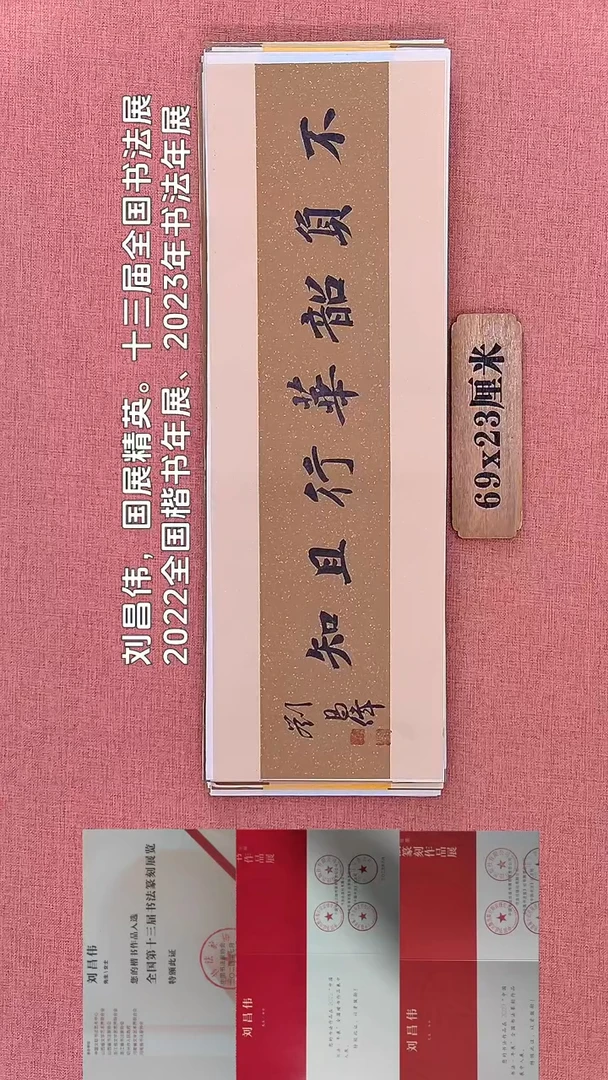 刘昌伟，国展精英。十三届全国书法展
2022全国楷书年展、2023年书法年展
不負韶華行且知
劉昌偉
69x23厘米
刘昌伟
您的楷书作品入选
全国第十三届书法篆刻展览
特颁此证
作品展
刘昌伟
篆刻作品展
刘昌伟